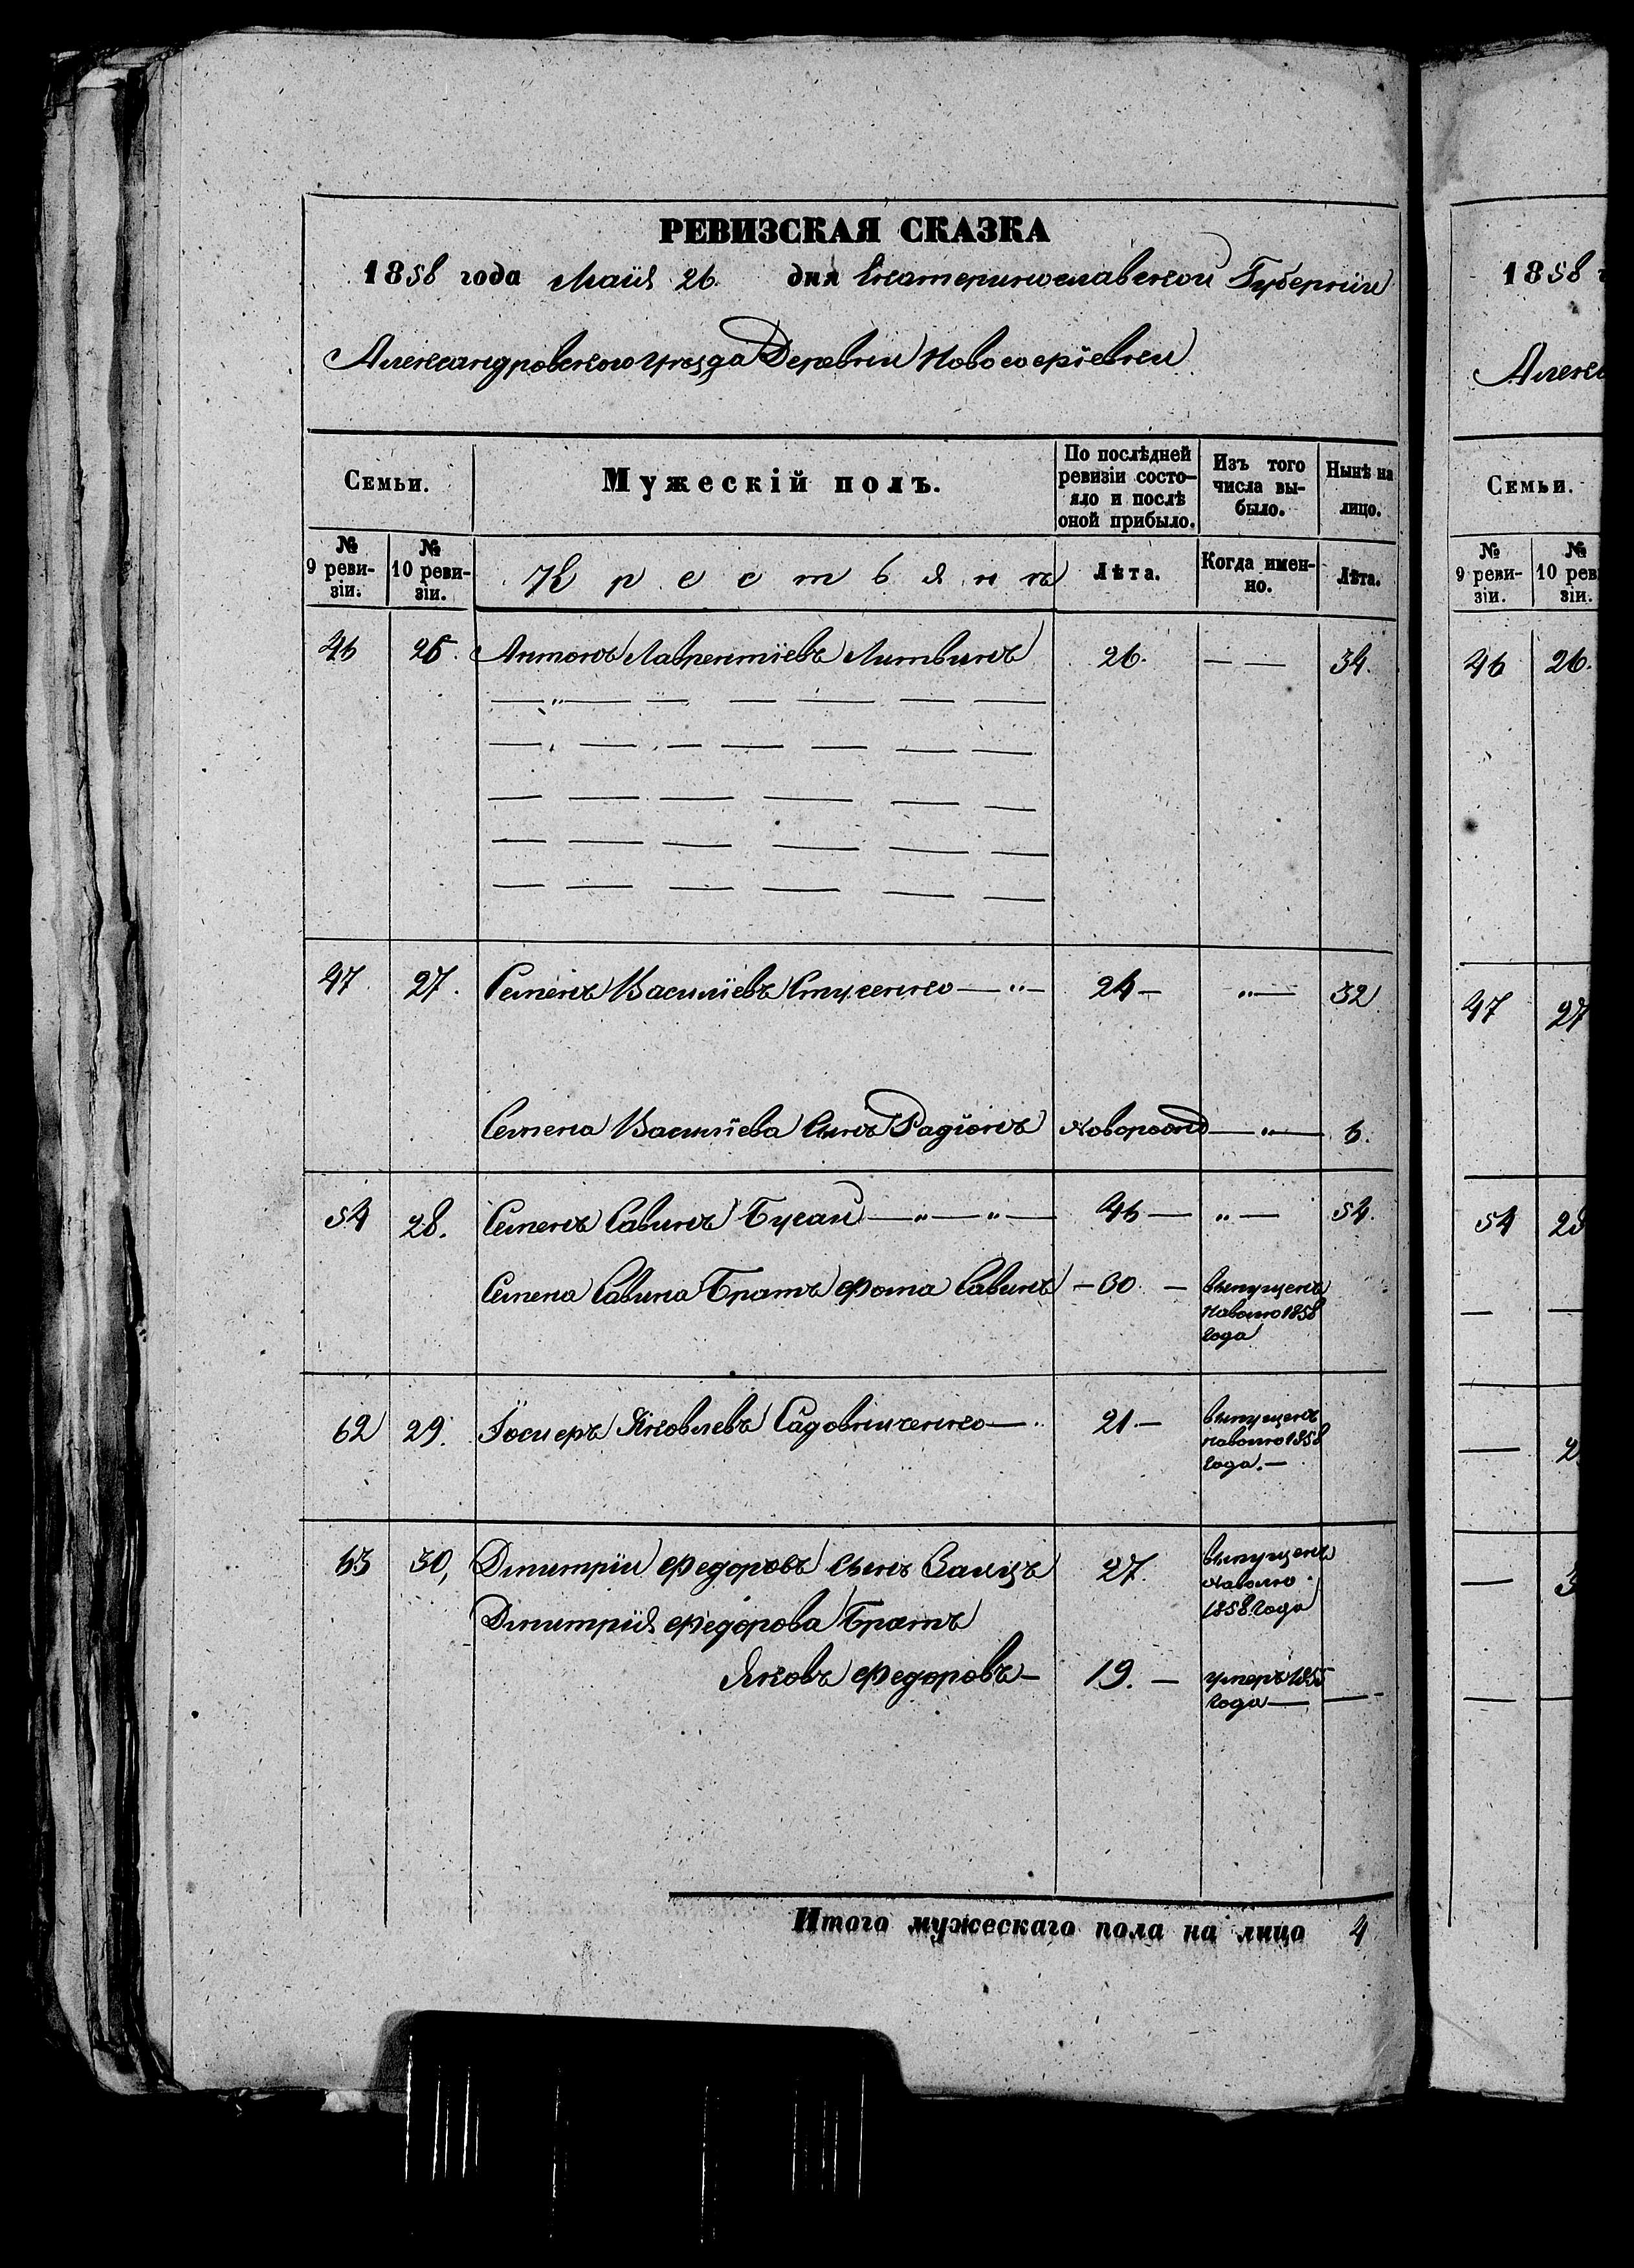 РЕВИЗСКАЯ СКАЗКА
1858 года Маія 26. дня Екатеринославской Губерніи
Александровского уезда Деревни Новософіевки
Семьи. Мужескій полъ. По послѣдней ревизіи состояло и послѣ оной прибыло. Изъ того числа выбыло. Нынѣ на лицо.
№ 9 ревизіи. № 10 ревизіи. Крестьянъ Лѣта. Когда именно. Лѣта.
46 26. Антонъ Лаврентіевъ Литвинъ 26. — — 34.
47. 27. Семенъ Василіевъ — „ — 24 — „ — 32
Семена Василіева Сынъ Радіонъ Новорожд — „ — 6.
54 28. Семенъ Савинъ — „ — „ — 46 — „ — 54.
Семена Савина Братъ Фома Савинъ — 30. — выпущенъ
на волю 1858
года
62 29. Яковлевъ Садовниченко — „ 21. — выпущенъ
на волю 1858
года. —
63 30, Дмитрій Федоровъ сынъ Заицъ 27. выпущенъ
на волю
1858 года
Дмитрія Федорова Братъ
Яковъ Федоровъ — 19. — умеръ 1855
года — —
Итого мужескаго пола на лицо 4
1858
Семьи.
№ 9 ревизіи.
46 26.
47 27
54